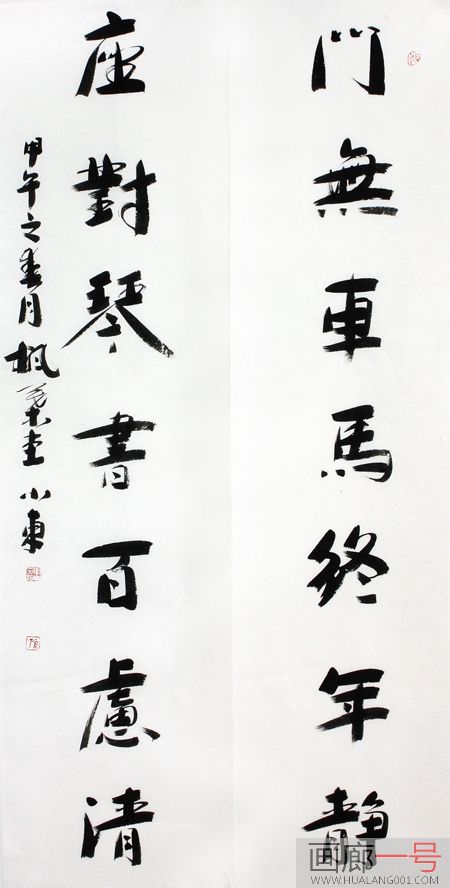 門無車馬終年静
座對琴書百慮清
甲午之春月楓葉堂小東
画廊一号
WWW.HUALANG001.COM